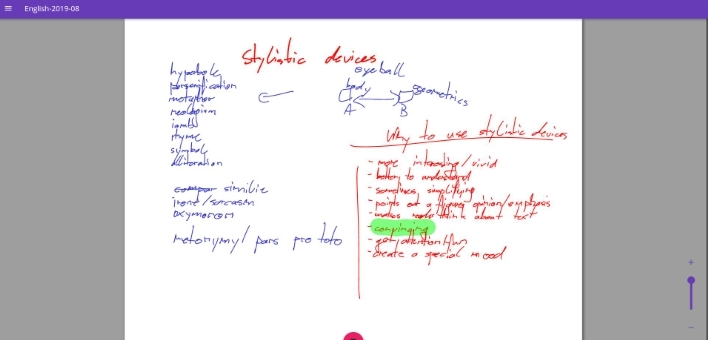 English-2019-08
stylistic devices
hyperbole
personification
metapher
neologism
iambs
rhyme
symbol
alliteration
compar similie
irony/sarcasm
oxymoron
metonymy/ pars pro toto
eyeball
body
geometrics
A B
Why to use stylistic devices
- more interesting/vivid
- better to understand
- sometimes simplifying
- points out a figures opinion/emphasis
- makes think about text
- convincing
- get attention/fun
- create a special mood